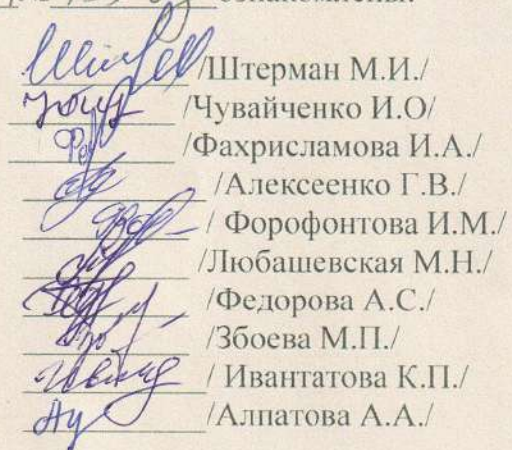 ознакомлены:
/Штерман М.И./
/Чувайченко И.О/
/Фахрисламова И.А./
/Алексеенко Г.В./
/ Форофонтова И.М./
/Любашевская М.Н./
/Федорова А.С./
/Збоева М.П./
/ Ивантатова К.П./
/Алпатова А.А./